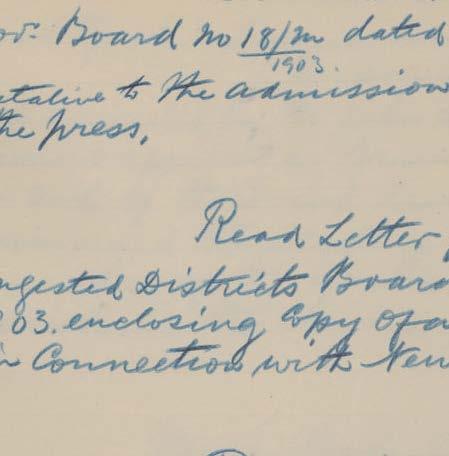 ov. Board No 18/M dated
1903.
tative to the admission
the press.
Read Letter
ngested Districts Board
903. enclosing Copy of a
in Connection with New